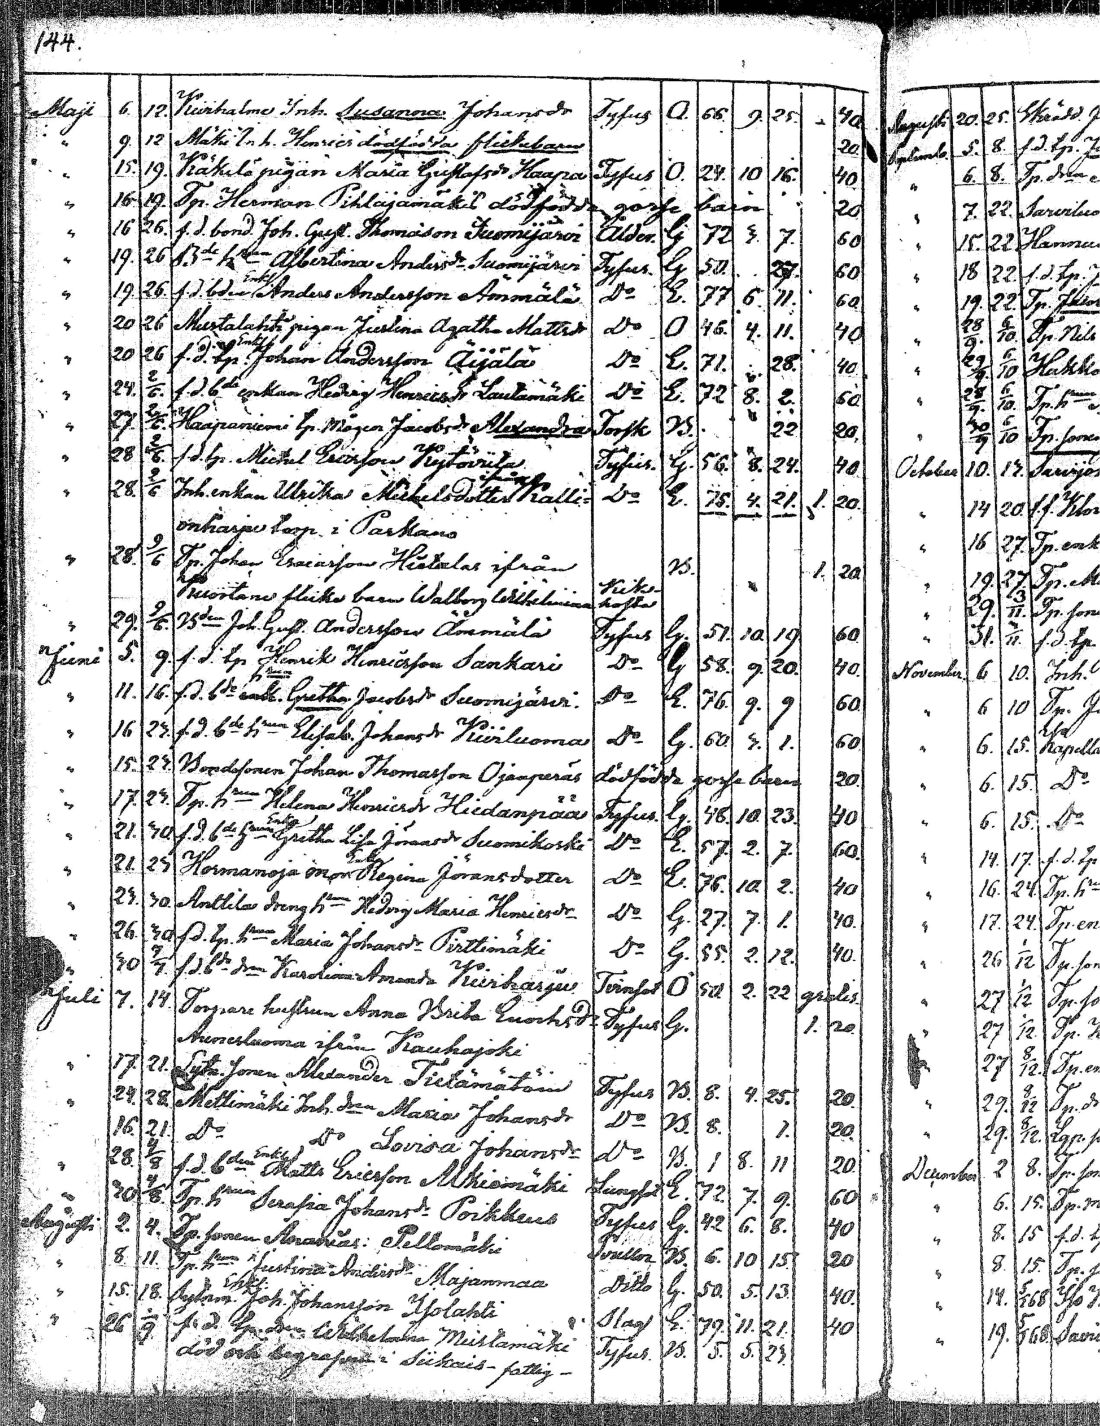 144.
Maji 6. 12. Kiviholma Inh. Susanna Johansdr Tyfus O. 66. 9. 25. - 40.
" 9. 12 Mäki Inh. Henrics dödfödda flickebarn 20.
" 15. 19. Käkelä pigan Maria Gustafsdr Haapa Tyfus O. 24. 10 16. 40
" 16. 19. Tp. Herman Pihlajamäkis dödfödda gosse barn 20
" 16 26. f.d. bond. Joh. Gust. Thomason Suomijärvi Ålder. G 72 3. 7. 60
" 19. 26 B:de h:run Albertina Andersdr Suomijärvi Tyfus. G. 50. 27. 60
" 19. 26. f.d. bden Enkl. Anders Andersson Ämmälä Do E. 77 6. 11. 60
" 20 26 Mustalahti pigan Justina Agatha Mattsdr Do O 46. 4. 11. 40
" 20 26 f.d. tp. Enkl. Johan Andersson Äijälä Do E. 71. 28. 40.
" 24. 2/6. f.d. bde enkan Hedvig Henricsdr Lautamäki Do E. 72 8. 2. 60
" 27. 2/6. Haapaniemi tp. mågen Jacobs dr Alexandra Torsk B. 22 20.
" 28 2/6. f.d. tp. Michel Ericsson Kytöviita Tyfus. G. 56. 8. 24. 40
" 28. 2/6 Inh. enkan Ulrika Mickelsdotter ifrån Kalli- Do E. 75. 4. 21. 1. 20.
onkarju torp. i Parkano
" 28. 9/6 Tp. Johan Esaiasson Hietalas ifrån B. 1. 20.
Kuortane flicke barn Walborg Wilhelmina Kikhosta
" 29. 9/6. B:den Joh. Gust. Andersson Ämmälä Tyfus G. 51. 10. 19. 60.
Juni 5. 9. f.d. tp Henrik Henricsson Sankari Do G 58. 9. 20. 40.
" 11. 16. f.d. bde h:run Gretha Jacobsdr Suomijärvi. Do E. 76. 9. 9 60.
" 16 23. f.d. bde h:run Elisab. Johansdr Kiviluoma Do G. 60. 3. 1. 60
" 15. 23. Bondesonen Johan Thomasson Ojanperäs dödfödda gosse barn 20.
" 17. 23. Tp. h:run Helena Henricsdr Hiedanpää Tyfus. G. 48. 10. 23. 40
" 21. 30. f.d. bde h:run Enka Gretha Lisa Jöransdr Suomikoski Do E. 57. 2. 7. 60.
" 21. 23 Hormanoja mor Enka Regina Jöransdotter Do E. 76. 10. 2. 40
" 23. 30. Anttila dreng h:run Hedvig Maria Henricsdr Do G. 27. 7. 1. 40.
" 26. 30 f.d. tp. h:run Maria Johansdr Pirttimäki Do G. 55. 2. 12. 40.
" 30 7/7. f.d. bde drn Karolina Amanda Kiviharju Tvinsot O 50. 2. 22 gratis.
Juli 7. 14. Torpare hustrun Anna Brita Enochsdr Tyfus G. 1. 20
luoma ifrån Kauhajoki
" 17. 21. Sytn. sonen Alexander Tietämätöin Tyfus B. 8. 4. 25. 20.
" 24. 28. Mettimäki Inh. drn Maria Johansdr Do B. 8. 1. 20.
16. 21. Do Do Lovisa Johansdr Do B. 1 8. 11 20
" 28. 4/8 f.d. bden Enkl. Matts Ericsson Alkiomäki Lungsot E. 72. 7. 9. 60
" 30 4/8. Tp. h:run Serafia Johansdr Poikkeus Tyfus G. 42 6. 8. 40
Augusti 2. 4. Tp. sonen Ananias: Peltomäki B. 6. 10 15. 20
" 8. 11. Tp. h:run Justina Andersdr Majanmaa Ditto G. 50. 5. 13. 40.
" 15. 18. Sytnin. Enkl. Joh. Johansson Isolahti Slag E. 79. 11. 21. 40
" 26 1/9. f.d. tp. drn Wilhelmina Mustamäki Tyfus. B. 5. 5. 23.
död och begrafven i Siikais - fattig -
Augusti 20. 25. Skrädd.
Septemb. 5. 8. f.d. tp.
" 6. 8. Tp. drn
" 7. 22. Sarviluo
" 15. 22 Hannu
" 18 22 f.d. tp.
" 19. 22. Tp.
" 28/9. 6/10. Tp. Nils
" 29/9 6/10 Hakko
" 28/9. 6/10. Tp. h:run
" 30/9 6/10 Tp. sonen
October 10. 13. Sarvijos
" 14 20. f.f. Klo
" 16 27. Tp. enk
" 19. 27. Tp. M
" 29. 3/11. Tp. son
" 31. 3/11. f.d. tp.
November 6 10. Inh.
" 6 10 Tp. J
" 6. 15. Kapella
" 6 15. Do
" 6. 15. Do
" 14. 17. f.d. tp
" 16. 24. Tp. h:run
" 17. 24. Tp. en
" 26 1/12 Tp. son
" 27 1/12 Tp. so
" 27 1/12. Tp.
" 27 8/12. Tp. en
" 29. 8/12 Tp. d
" 29. 8/12.
December 2 8. Tp. son
" 6. 15. Tp. m
" 8. 15 f.d. t
" 8. 15. Tp. s
" 14. 5/1 68
" 19. 5/1 68. Savi